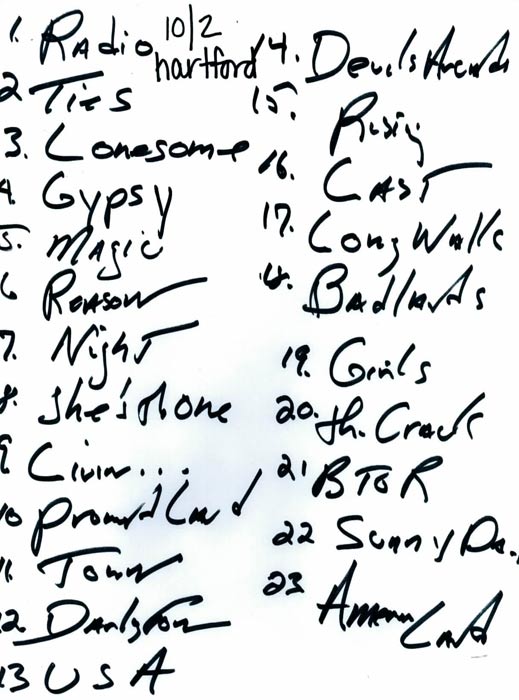 10/2
hartford
1. Radio
2 Ties
3. Lonesome
4. Gypsy
5. Magic
6 Reason
7. Night
8. She's the one
9 Livin...
10 Promised Land
11. Town
12. Darlington
13 U S A
14. Devils Arcade
15. Rising
16. LAST
17. Long Walk
18. Badlands
19. Girls
20. th. Crack
21 BTOR
22 Sunny Da.
23 American Land